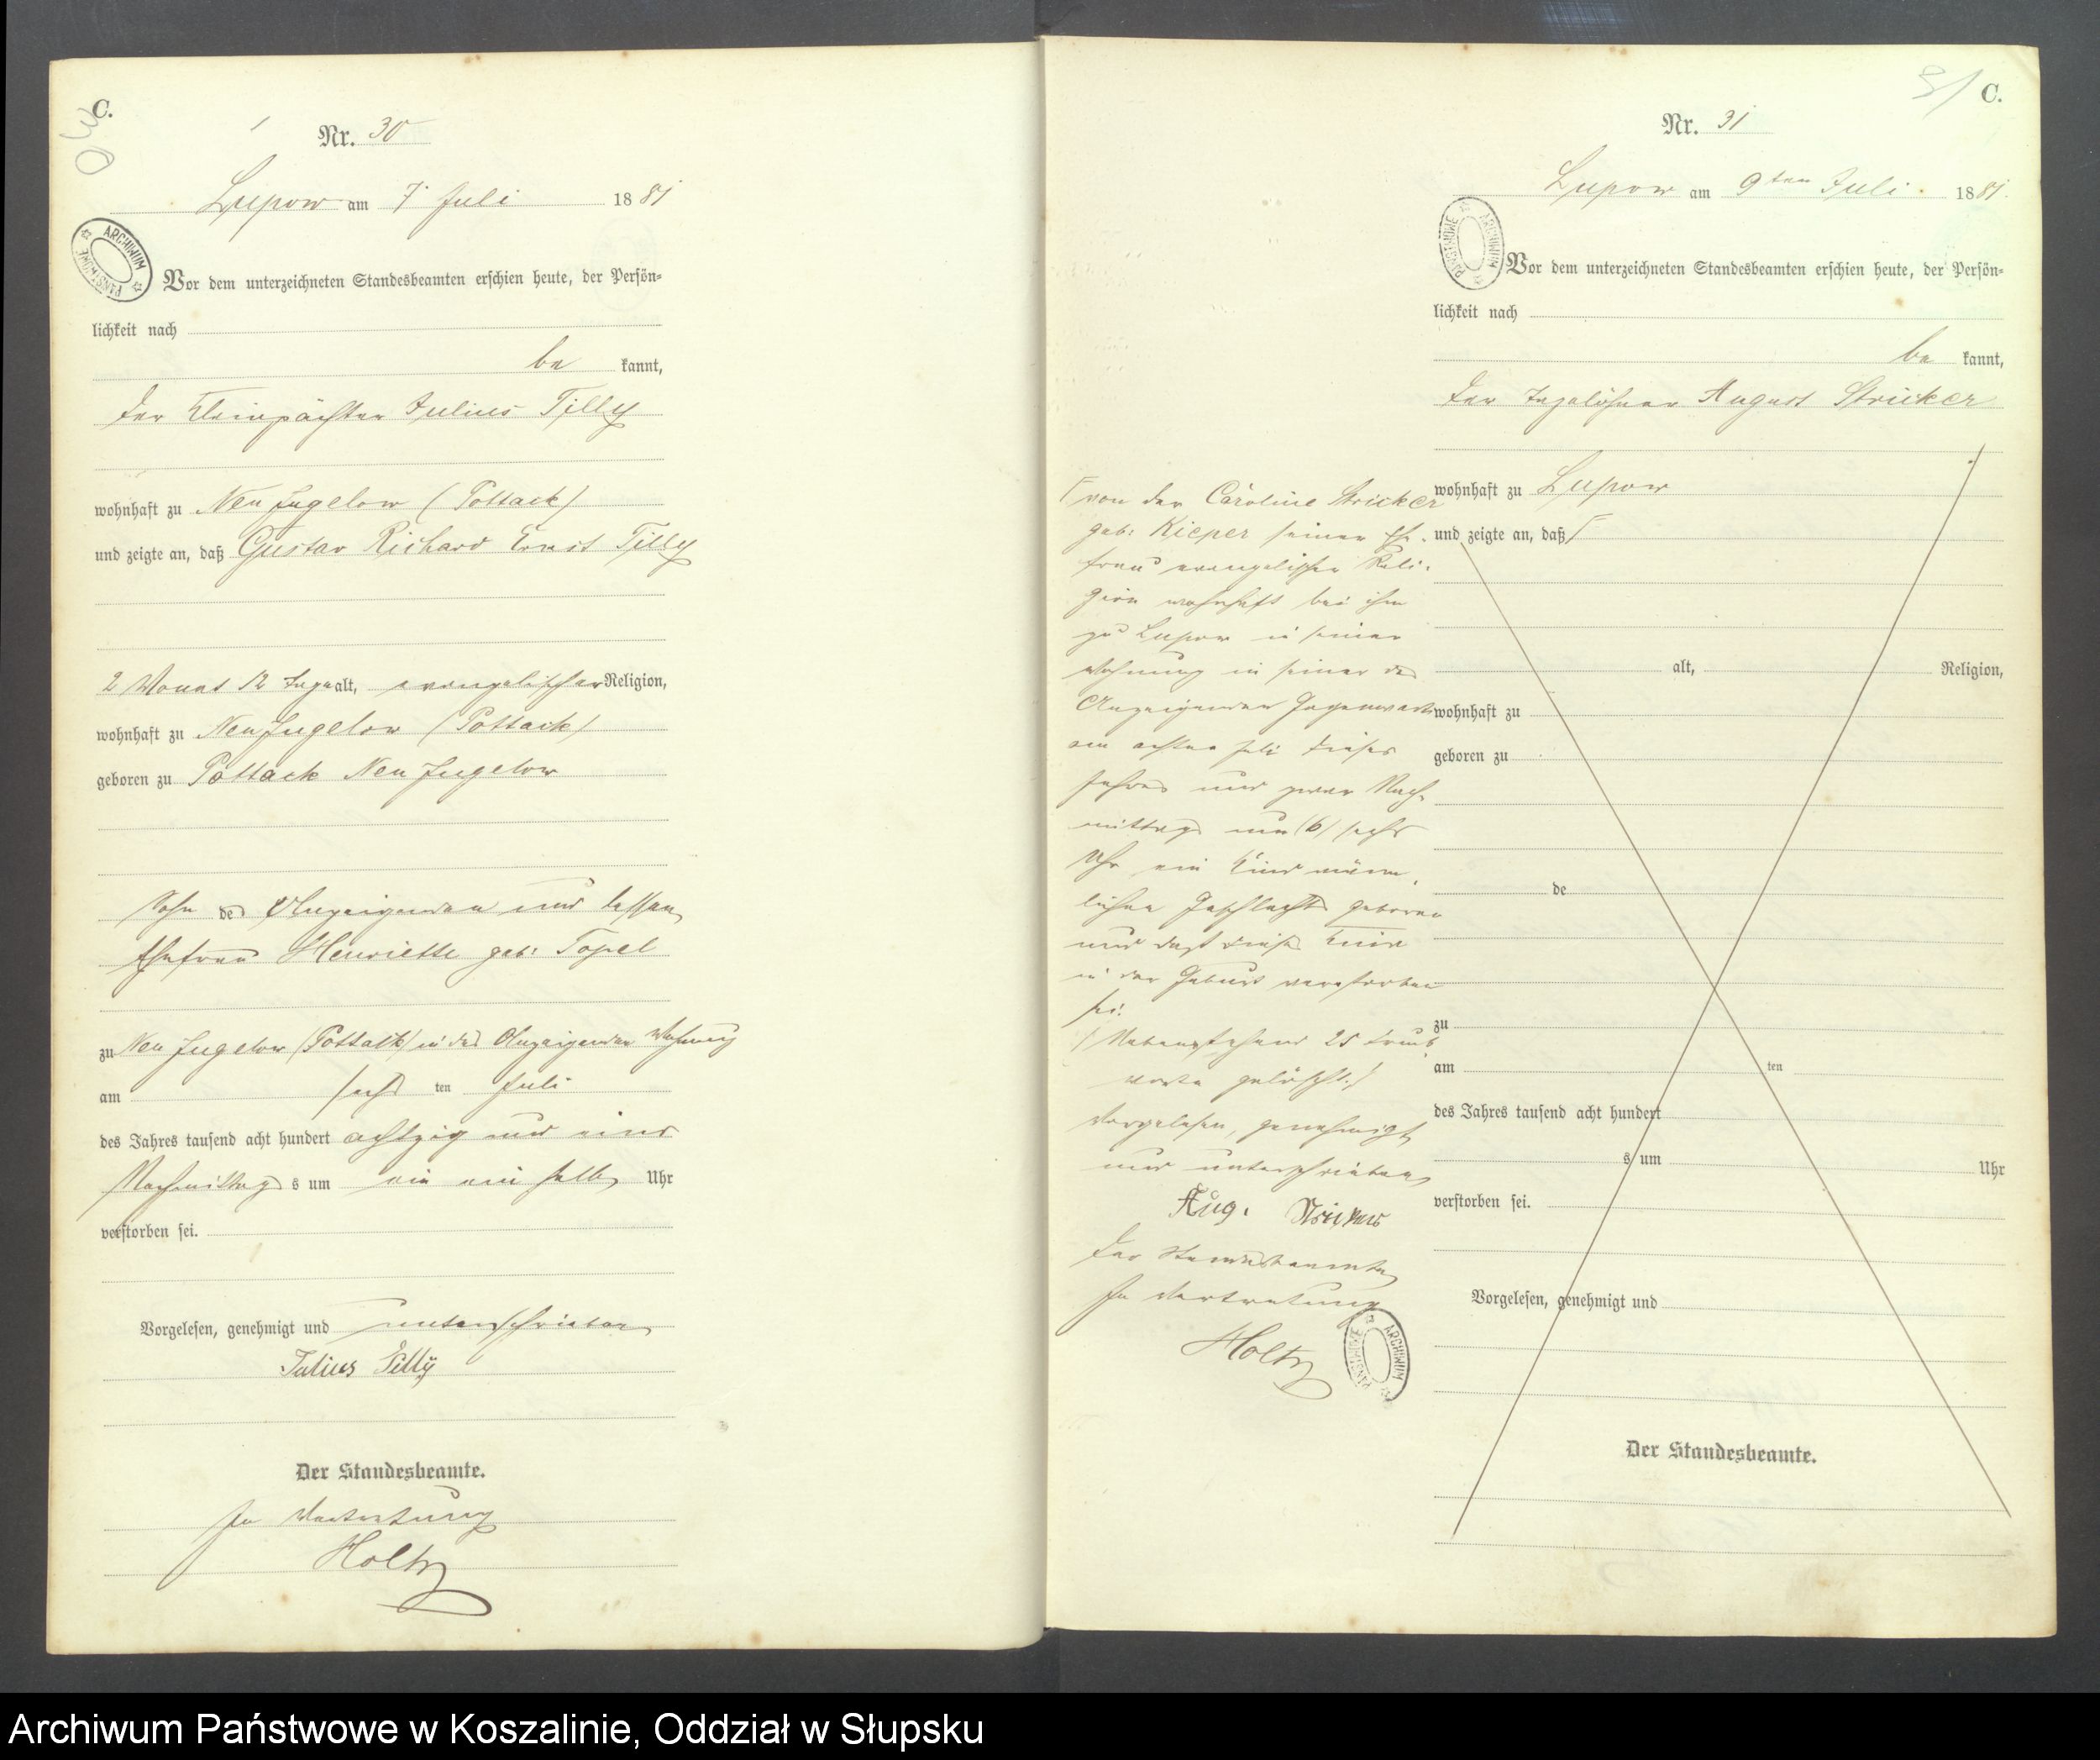 C.
30
Nr. 30
Lupow am 7. Juli 1881
ARCHIWUM PAŃSTWOWE
Vor dem unterzeichneten Standesbeamten erschien heute, der Persön-
lichkeit nach
be kannt,
der Kleinpächter Julius Tilly
wohnhaft zu Neu Jugelow (Pottack)
und zeigte an, daß Gustav Richard Ernst Tilly
2 Monat 12 Tage alt, evangelischer Religion,
wohnhaft zu Neu Jugelow (Pottack)
geboren zu Pottack Neu Jugelow
Sohn des Anzeigenden und dessen
Ehefrau Henriette geb: Topel
zu Neu Jugelow (Pottack) in des Anzeigenden Wohnung
am sechs ten Juli
des Jahres tausend acht hundert achtzig und eins
Nachmittag s um ein ein halb Uhr
verstorben sei.
Vorgelesen, genehmigt und unterschrieben
Julius Tilly
Der Standesbeamte.
In Vertretung
Holtz
31 C.
Nr. 31
Lupow am 9ten Juli. 1881.
ARCHIWUM PAŃSTWOWE
Vor dem unterzeichneten Standesbeamten erschien heute, der Persön-
lichkeit nach
be kannt,
der Tagelöhner August Stricker
wohnhaft zu Lupow
und zeigte an, daß
alt, Religion,
wohnhaft zu
geboren zu
de
zu
am ten
des Jahres tausend acht hundert
s um Uhr
verstorben sei.
Vorgelesen, genehmigt und
Der Standesbeamte.
von der Caroline Stricker
geb: Kieper seiner Ehe-
frau evangelischer Reli-
gion wohnhaft bei ihm
zu Lupow in seiner
Wohnung in seiner des
Anzeigenden Gegenwart
am achten Juli dieses
Jahres und zwar Nach-
mittags um (6) sechs
Uhr ein Kind männ-
lichen Geschlechts geboren
und daß dieses Kind
in der Geburt verstorben
sei.
(Nebenstehend 25 Druck-
worte gelöscht.)
Vorgelesen, genehmigt
und unterschrieben
Aug. Stricker
Der Standesbeamte
In Vertretung
Holtz
ARCHIWUM PAŃSTWOWE
Archiwum Państwowe w Koszalinie, Oddział w Słupsku